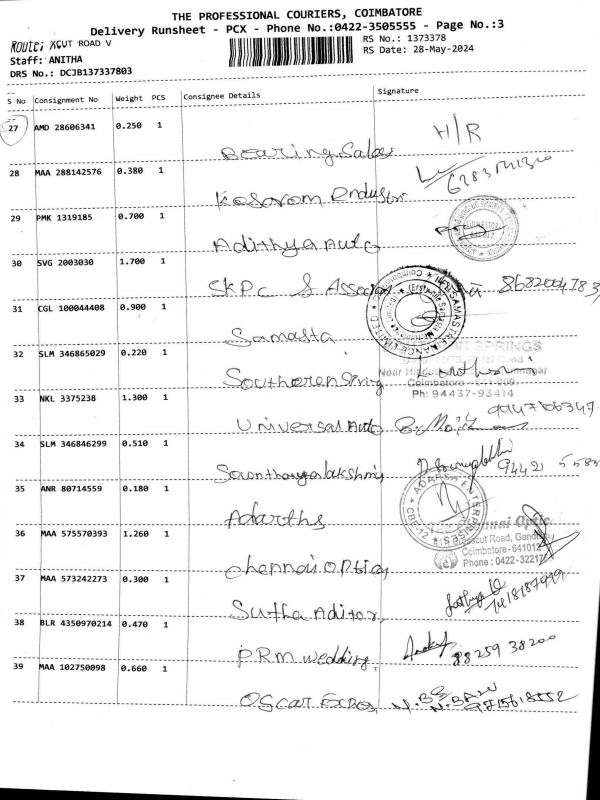 THE PROFESSIONAL COURIERS, COIMBATORE
Delivery Runsheet - PCX - Phone No.:0422-3505555 - Page No.:3
Route: ROAD V
RS No.: 1373378
Staff: ANITHA
RS Date: 28-May-2024
DRS No.: DCJB137337803
S No Consignment No Weight PCS Consignee Details Signature
27 AMD 28606341 0.250 1 H/R
Bearing Sales
28 MAA 288142576 0.380 1
Kesavom Industri
29 PMK 1319185 0.700 1
Adithya Auto
30 SVG 2003030 1.700 1
SKPC & Associ 8682004783
31 CGL 100044408 0.900 1
Samasta
32 SLM 346865029 0.220 1 SPRINGS
Southeren Spring
Coimbatore
Ph: 94437-93414
33 NKL 3375238 1.300 1
Universal Auto
34 SLM 346846299 0.510 1
94421
35 ANR 80714559 0.180 1
Adarths
ADARSH ENTERPRISES
CBE-12
36 MAA 575570393 1.260 1
Chennai Optics
Coimbatore-641012
Phone : 0422-32217
37 MAA 573242273 0.300 1
Sutha Aditor,
38 BLR 4350970214 0.470 1
PRM wedding 88259 38200
39 MAA 102750098 0.660 1
Oscar Expos,